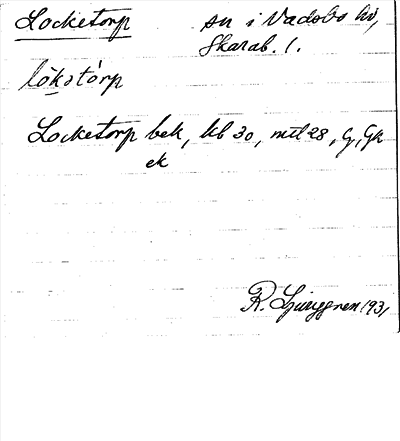 Locketorp sn i Vadsbo hd,
Skarab. l.
lòkətórp
Locketorp bek, kb 30, mtl 28, G, GK
ek
R. Ljunggren 1931